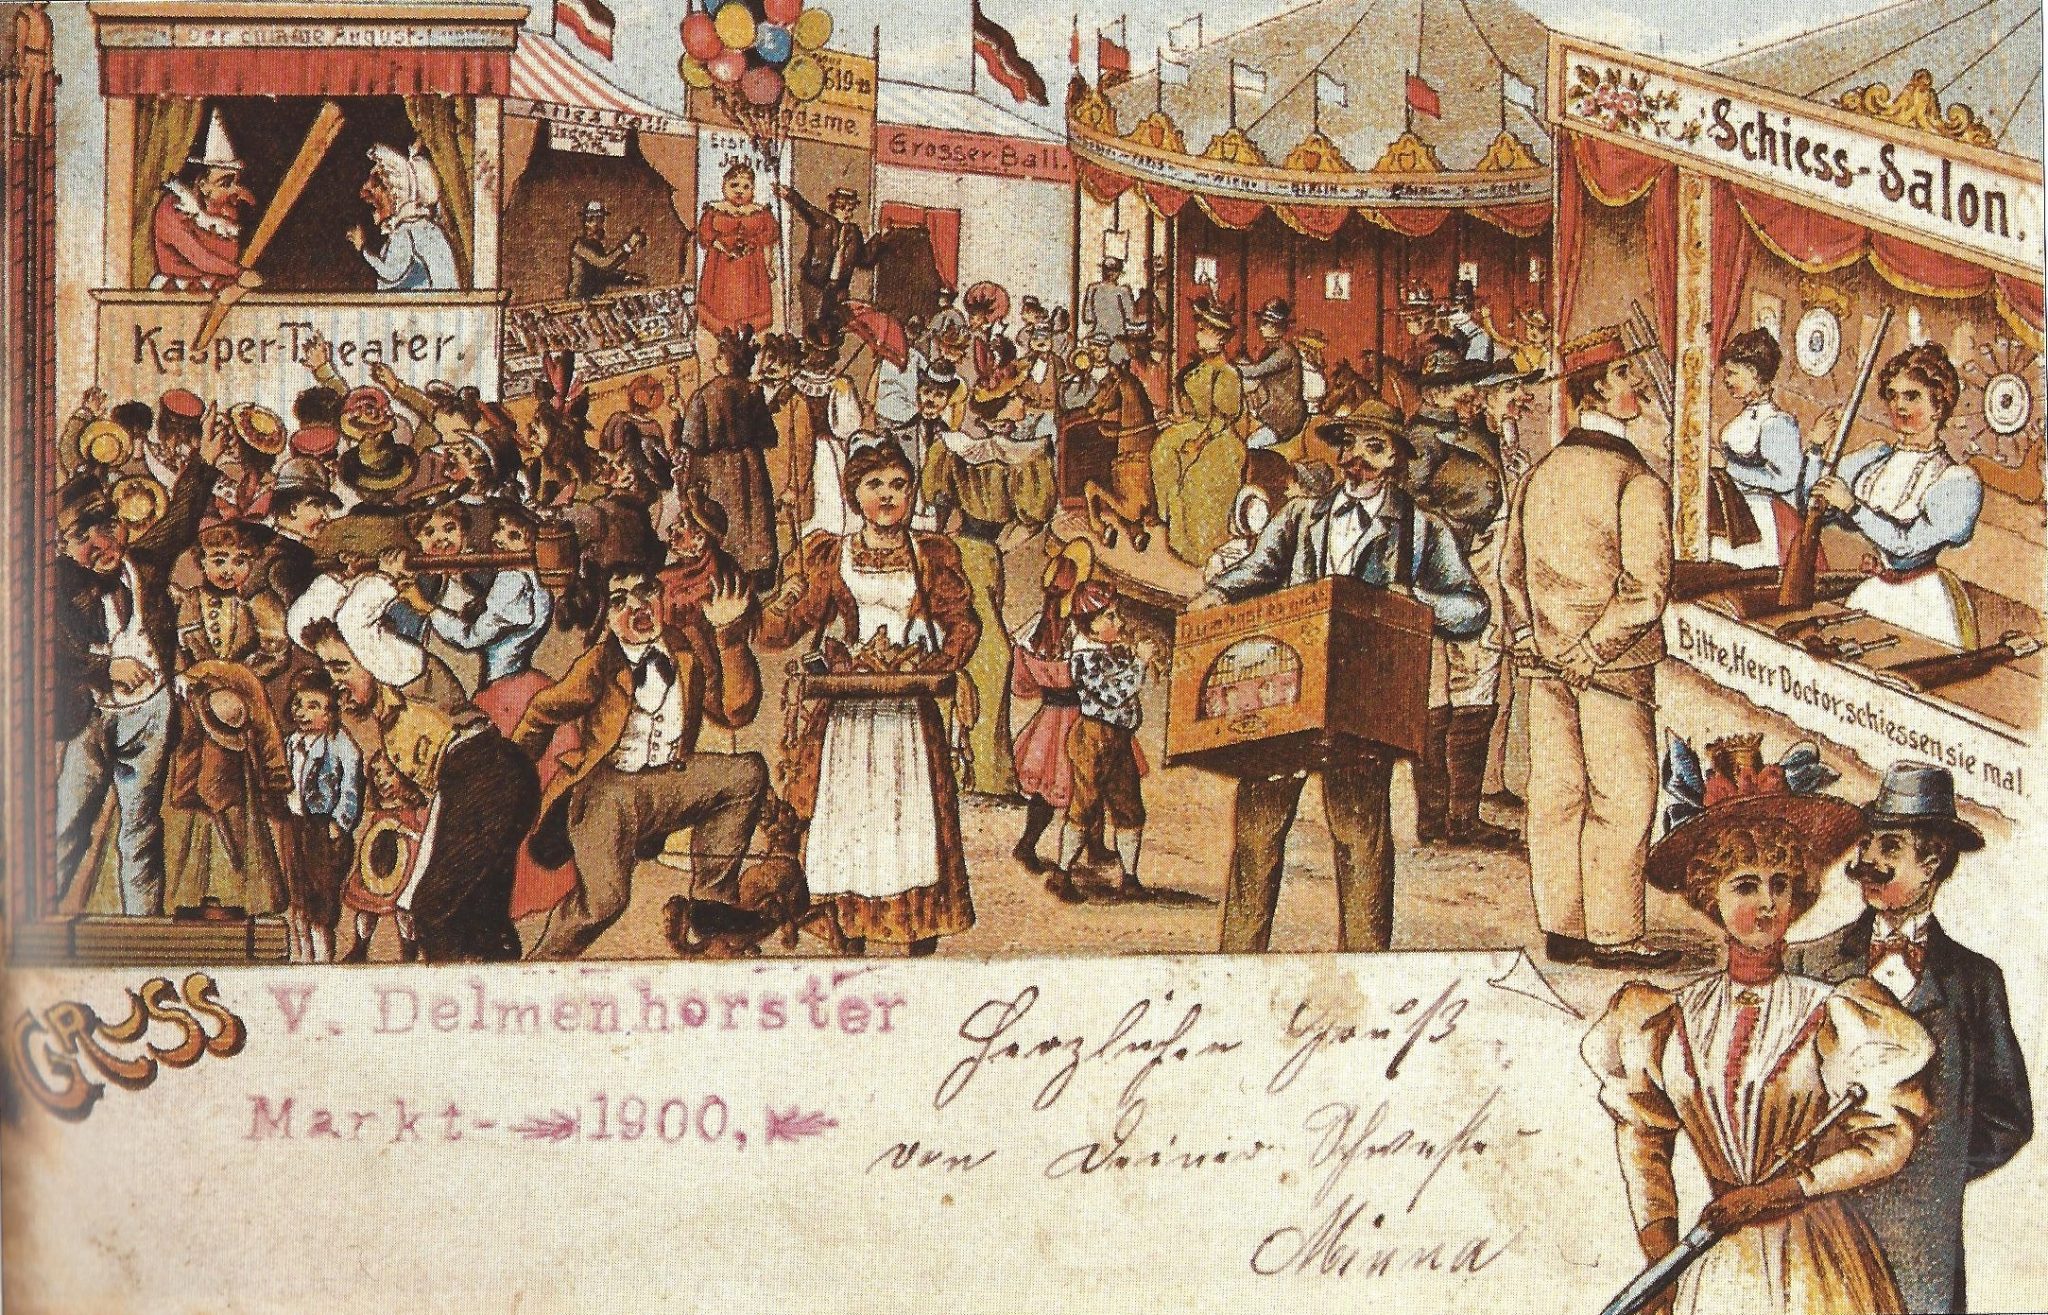 Der dumme August.
Kasper-Theater.
Riesendame.
Grosser-Ball.
WIEN
BERLIN
ROM
Schiess-Salon.
Bitte, Herr Doctor, schiessen sie mal.
GRUSS
V. Delmenhorster
Markt- 1900,
Herzlichen Gruß
von Deiner Schwester
Minna